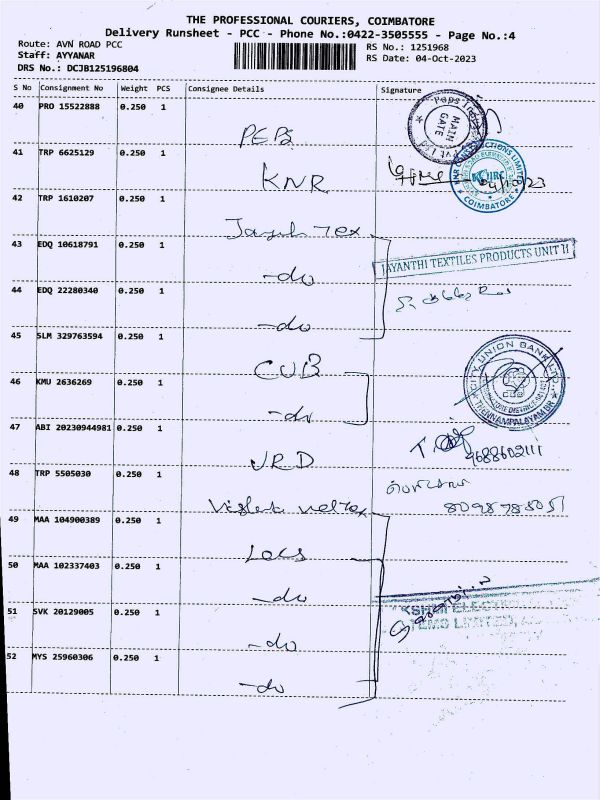 THE PROFESSIONAL COURIERS, COIMBATORE
Delivery Runsheet - PCC - Phone No.:0422-3505555 - Page No.:4
Route: AVN ROAD PCC
RS No.: 1251968
Staff: AYYANAR
RS Date: 04-Oct-2023
DRS No.: DCJB125196804
S No Consignment No Weight PCS Consignee Details Signature
40 PRO 15522888 0.250 1
PEPS
MAIN GATE
41 TRP 6625129 0.250 1
KNR
KNR CONSTRUCTIONS LIMITED
COIMBATORE
04/10/23
42 TRP 1610207 0.250 1
Tex
43 EDQ 10618791 0.250 1
-do
JAYANTHI TEXTILES PRODUCTS UNIT II
44 EDQ 22280340 0.250 1
-do
45 SLM 329763594 0.250 1
CUB
CITY UNION BANK LTD.
THENNAMPALAYAM BR
46 KMU 2636269 0.250 1
-do
47 ABI 20230944981 0.250 1
URD
9688602111
48 TRP 5505030 0.250 1
49 MAA 104900389 0.250 1
50 MAA 102337403 0.250 1
-do
51 SVK 20129005 0.250 1
-do
52 MYS 25960306 0.250 1
-do